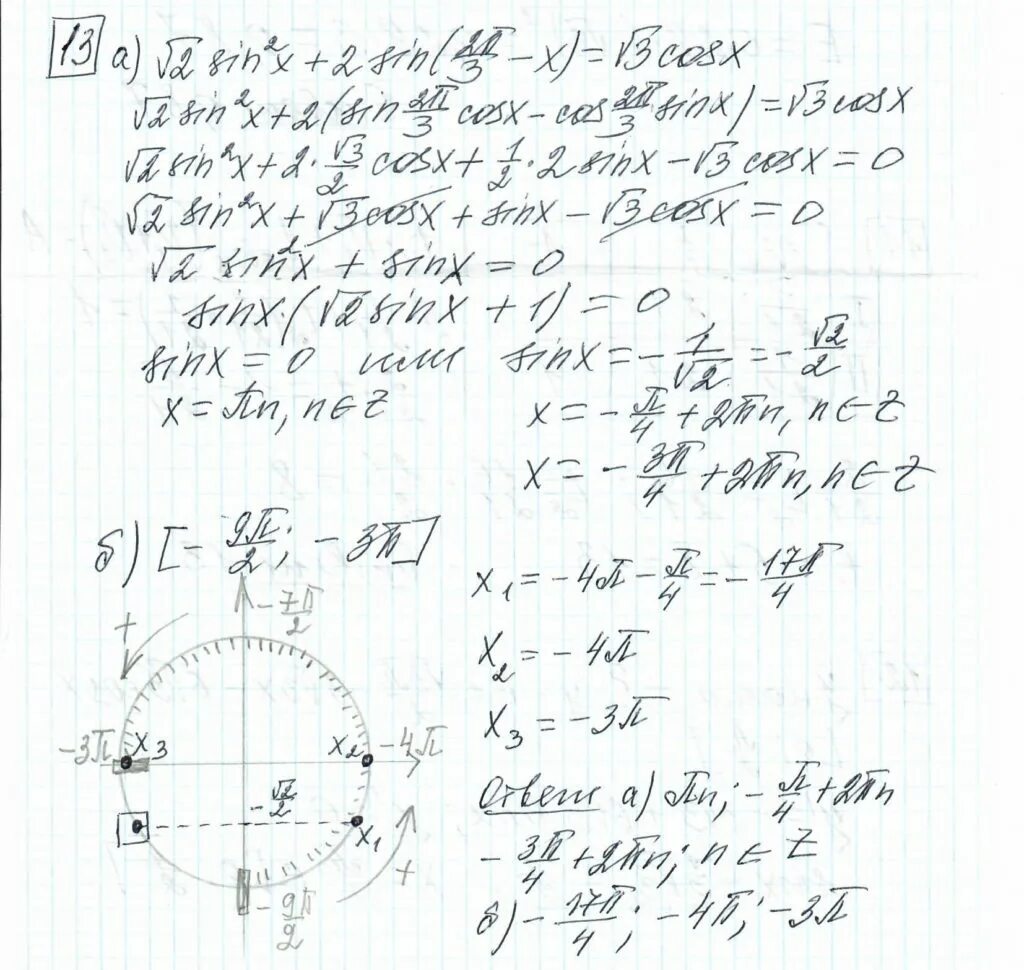 13 а) √2 sin²x + 2 sin(2π/3 − x) = √3 cosx
√2 sin²x + 2(sin 2π/3 cosx − cos 2π/3 sinx) = √3 cosx
√2 sin²x + 2·√3/2 cosx + 1/2·2 sinx − √3 cosx = 0
√2 sin²x + √3 cosx + sinx − √3 cosx = 0
√2 sin²x + sinx = 0
sinx·(√2 sinx + 1) = 0
sinx = 0 или sinx = −1/√2 = −√2/2
x = πn, n∈Z
x = −π/4 + 2πn, n∈Z
x = −3π/4 + 2πn, n∈Z
б) [−9π/2; −3π]
−7π/2
+
−3π
x₃
x₂
−4π
−√2/2
x₁
+
−9π/2
x₁ = −4π − π/4 = −17π/4
x₂ = −4π
x₃ = −3π
Ответ а) πn; −π/4 + 2πn
−3π/4 + 2πn; n∈Z
б) −17π/4; −4π; −3π